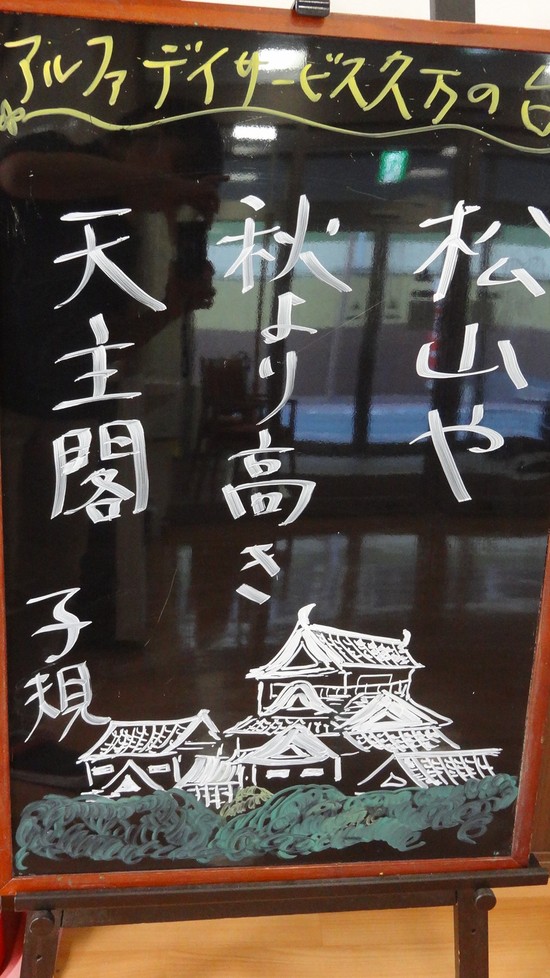 アルファデイサービス久万の台
松山や
秋より高き
天主閣
子規